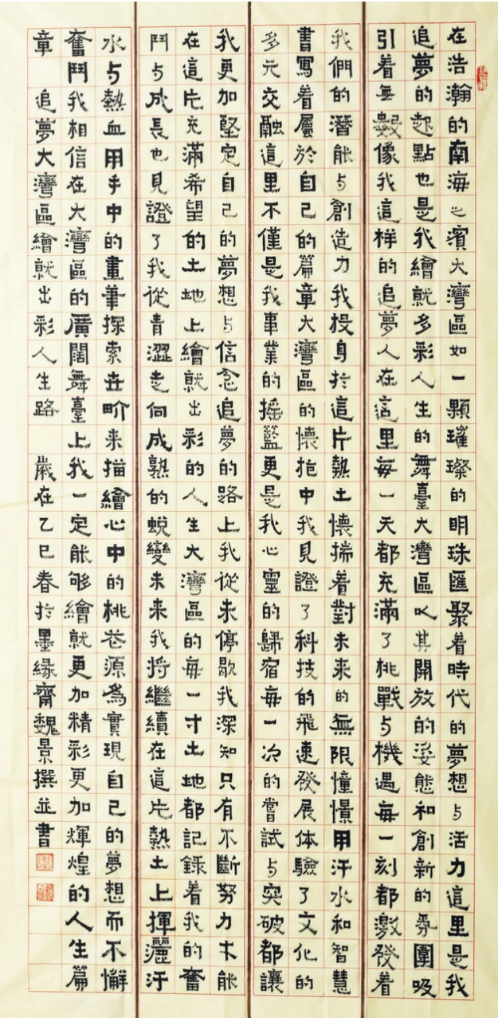 在浩瀚的南海之濱大灣區如一顆璀璨的明珠匯聚着時代的夢想与活力這里是我
追夢的起點也是我繪就多彩人生的舞臺大灣區以其開放的姿態和創新的氛圍吸
引着無數像我這样的追夢人在這里每一天都充滿了挑戰与機遇每一刻都激發着
我們的潛能与創造力我投身於這片熱土懷揣着對未來的無限憧憬用汗水和智慧
書寫着屬於自己的篇章大灣區的懷抱中我見證了科技的飛速發展体驗了文化的
多元交融這里不僅是我事業的搖籃更是我心靈的歸宿每一次的嘗試与突破都讓
我更加堅定自己的夢想与信念追夢的路上我從未停歇我深知只有不斷努力才能
在這片充滿希望的土地上繪就出彩的人生大灣區的每一寸土地都記錄着我的奮
鬥与成長也見證了我從青澀走向成熟的蛻變未來我將繼續在這片熱土上揮灑汗
水与熱血用手中的畫筆探索世界來描繪心中的桃花源為實現自己的夢想而不懈
奮鬥我相信在大灣區的廣闊舞臺上我一定能够繪就更加精彩更加輝煌的人生篇
章 追夢大灣區繪就出彩人生路 歲在乙巳春於墨緣齋魏景撰並書